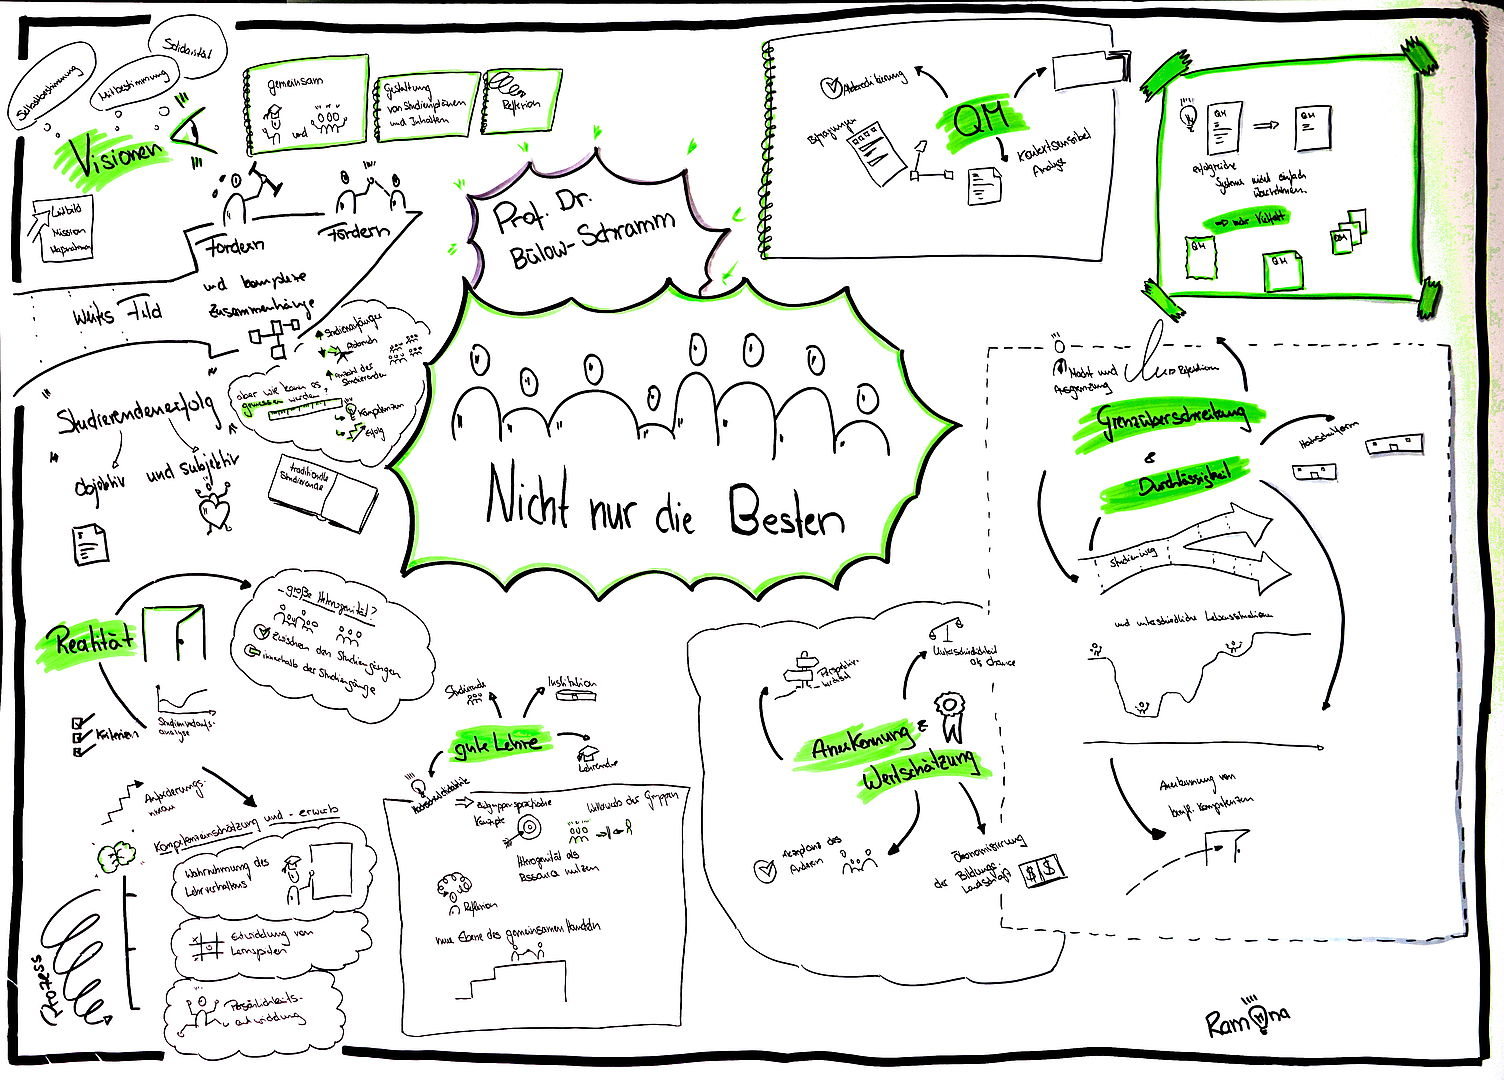 Selbstbestimmung
Mitbestimmung
Solidarität
Visionen
Leitbild
Mission
gemeinsam
und
Gestaltung
von Studienplänen
und Inhalten
Reflexion
Fordern
Fördern
und komplexe
Zusammenhänge
Weites Feld
Prof. Dr.
Bülow-Schramm
Nicht nur die Besten
Studierendenerfolg
objektiv und subjektiv
Studienanfänger
Abbruch
Anzahl der
Studierenden
aber wie kann es
gemessen werden?
Kompetenzen
Erfolg
traditionelle
Studierende
Realität
große Heterogenität?
zwischen den Studiengängen
innerhalb der Studiengänge
Kriterien
Studienverlaufs-
analyse
Anforderungs-
niveau
Kompetenzeinschätzung und -erwerb
Wahrnehmung des
Lehrverhaltens
Entwicklung von
Lernspielen
Persönlichkeits-
entwicklung
Prozess
gute Lehre
Studierende
Institution
Lehrende
Hochschuldidaktik
Zielgruppenspezifische
Konzepte
Miteinander der Gruppen
Heterogenität als
Ressource nutzen
Reflexion
neue Ebene des gemeinsamen Handelns
QM
Akkreditierung
Befragungen
Kontextsensibel
Analyse
QM
QM
erfolgreiche
Systeme nicht einfach
übernehmen.
⇒ mehr Vielfalt
QM
QM
QM
Macht und
Ausgrenzung
Grenzüberschreitung
&
Durchlässigkeit
Hochschulform
Studienweg
und unterschiedliche Lebenssituationen
Anerkennung von
berufl. Kompetenzen
Perspektiv-
wechsel
Unterschiedlichkeit
als Chance
Anerkennung &
Wertschätzung
Akzeptanz des
Anderen
Ökonomisierung
der Bildungs-
landschaft
$ $
Ramona